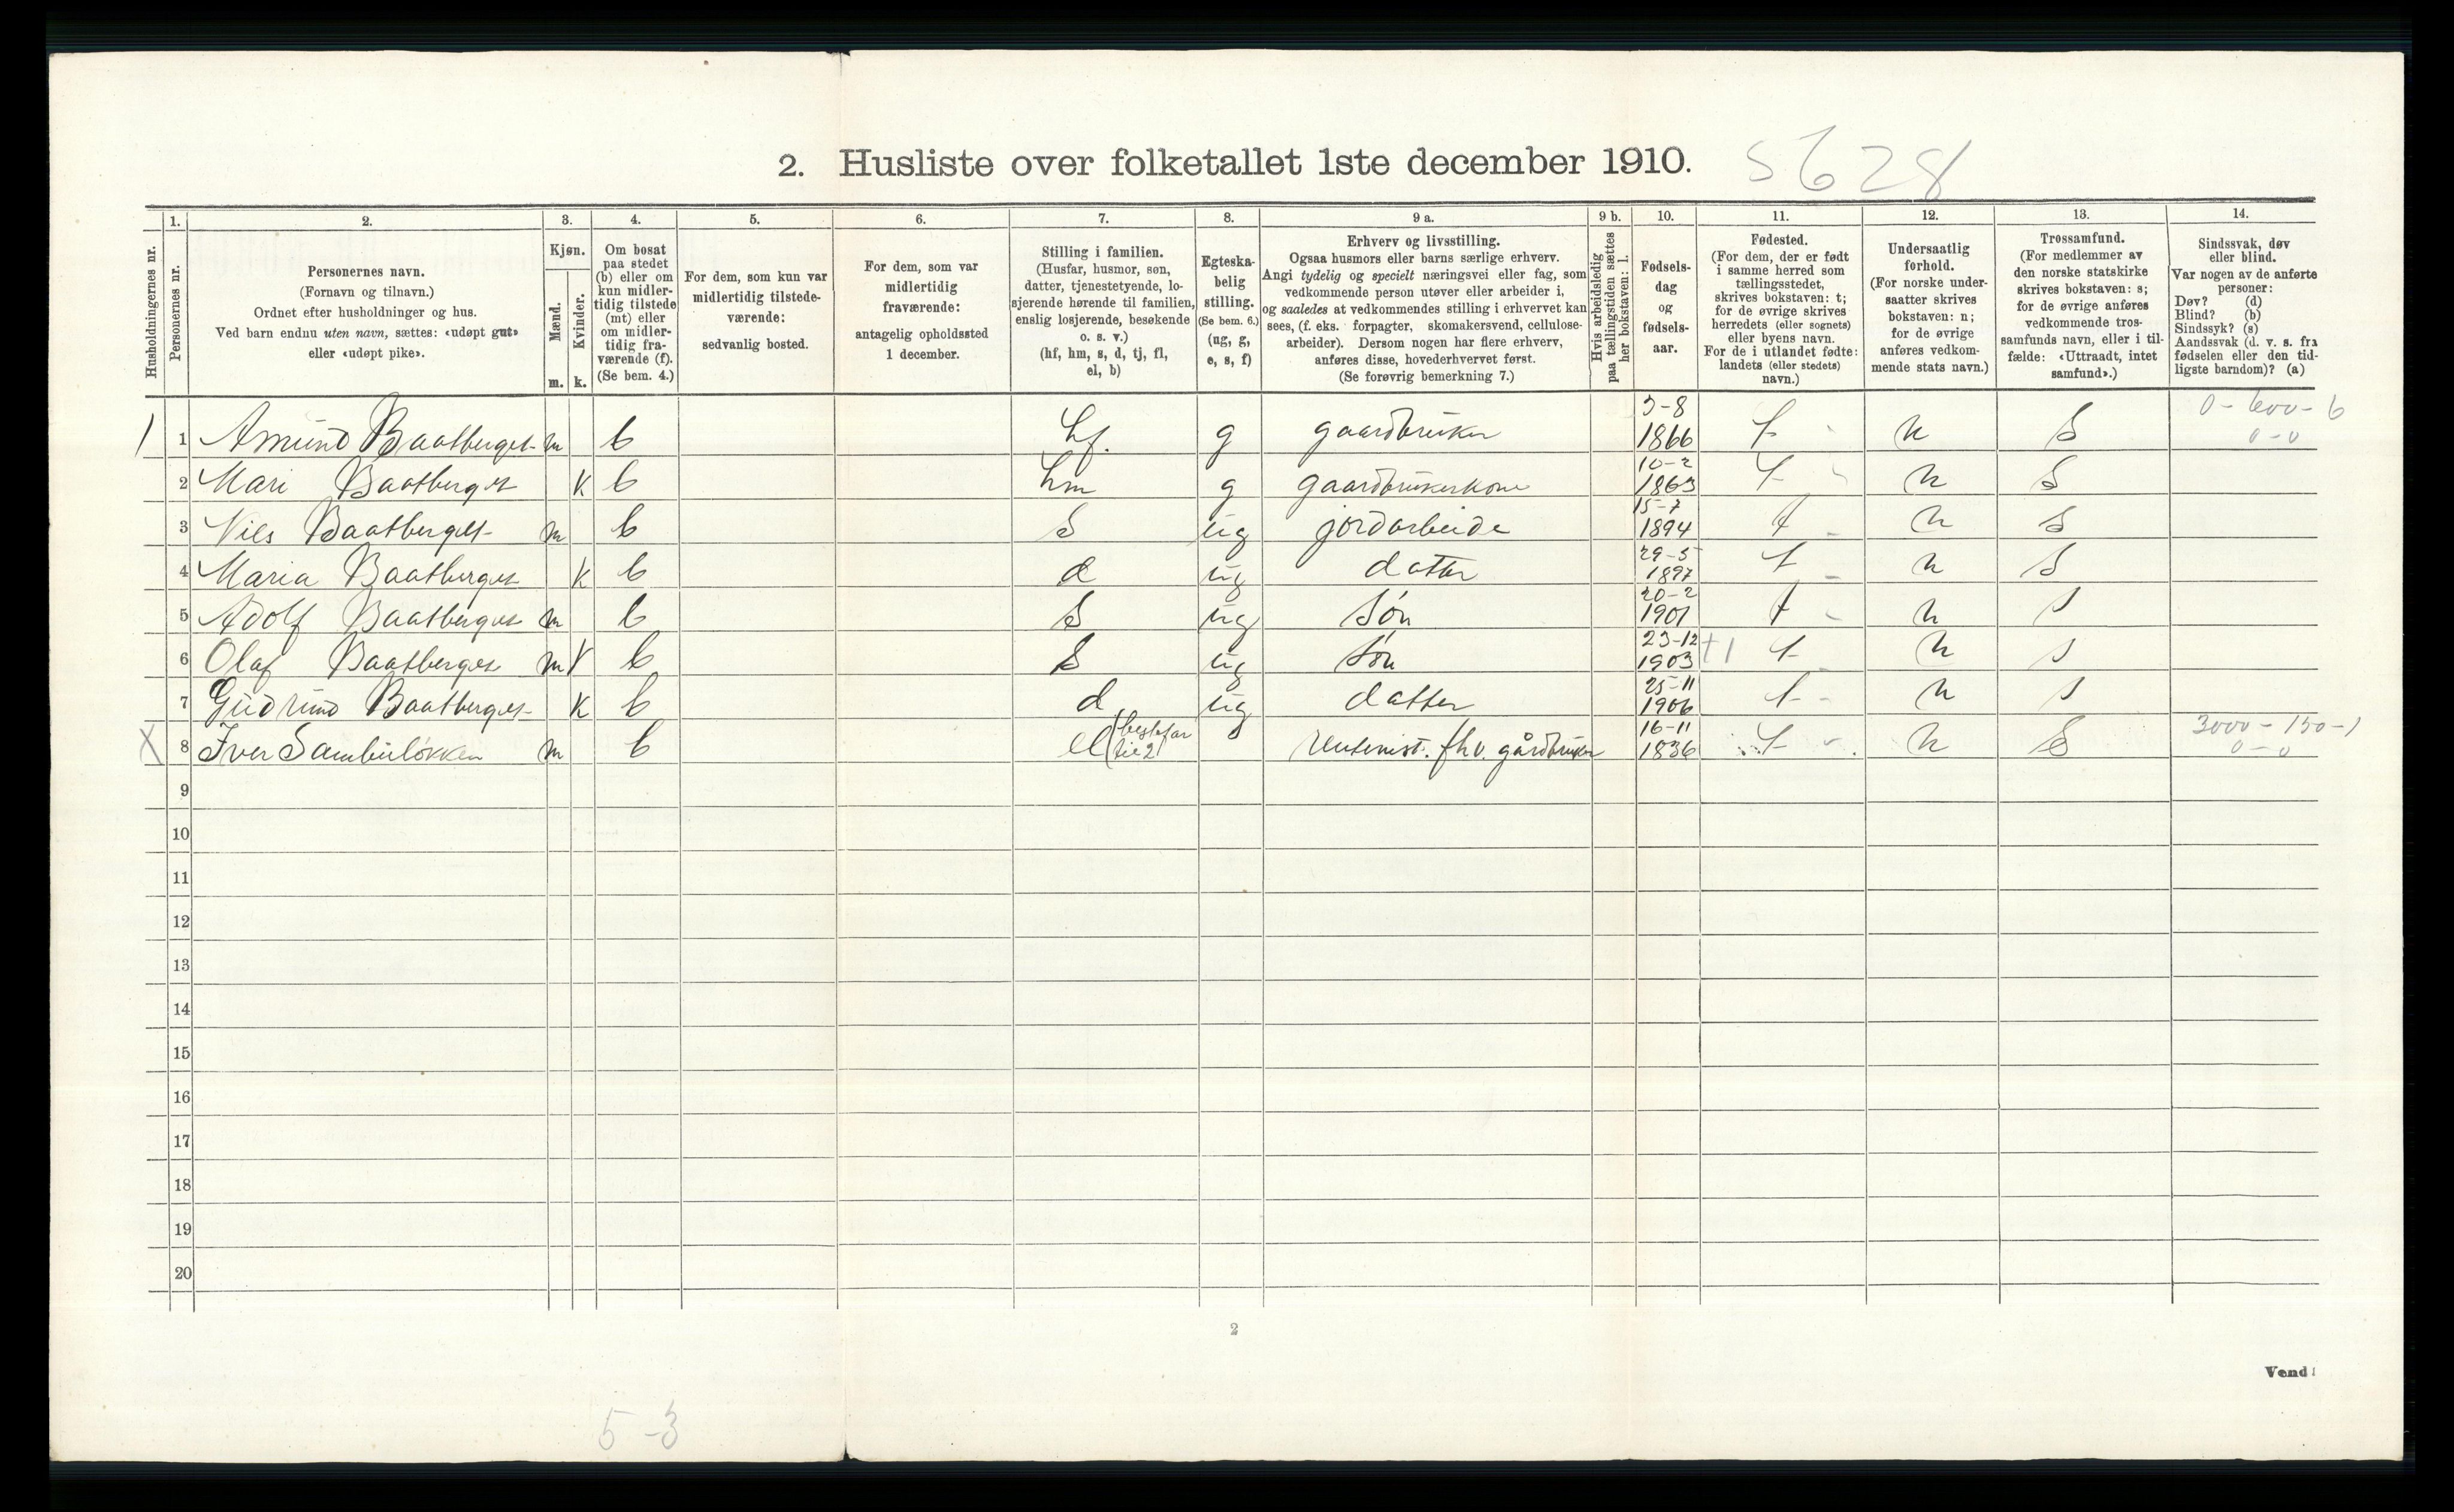 2. Husliste over folketallet 1ste december 1910. 5628
Husholdningernes nr.
1. Personernes nr.
2. Personernes navn.
(Fornavn og tilnavn.)
Ordnet efter husholdninger og hus.
Ved barn endnu uten navn, sættes: «udøpt gut»
eller «udøpt pike».
3. Kjøn.
Mænd. m.
Kvinder. k.
4. Om bosat
paa stedet
(b) eller om
kun midler-
tidig tilstede
(mt) eller
om midler-
tidig fra-
værende (f).
(Se bem. 4.)
5. For dem, som kun var
midlertidig tilstede-
værende:
sedvanlig bosted.
6. For dem, som var
midlertidig
fraværende:
antagelig opholdssted
1 december.
7. Stilling i familien.
(Husfar, husmor, søn,
datter, tjenestetyende, lo-
sjerende hørende til familien,
enslig losjerende, besøkende
o. s. v.)
(hf, hm, s, d, tj, fl,
el, b)
8. Egteska-
belig
stilling.
(Se bem. 6.)
(ug, g,
e, s, f)
9 a. Erhverv og livsstilling.
Ogsaa husmors eller barns særlige erhverv.
Angi tydelig og specielt næringsvei eller fag, som
vedkommende person utøver eller arbeider i,
og saaledes at vedkommendes stilling i erhvervet kan
sees, (f. eks. forpagter, skomakersvend, cellulose-
arbeider). Dersom nogen har flere erhverv,
anføres disse, hovederhvervet først.
(Se forøvrig bemerkning 7.)
9 b. Hvis arbeidsledig
paa tællingstiden sættes
her bokstaven: l.
10. Fødsels-
dag
og
fødsels-
aar.
11. Fødested.
(For dem, der er født
i samme herred som
tællingsstedet,
skrives bokstaven: t;
for de øvrige skrives
herredets (eller sognets)
eller byens navn.
For de i utlandet fødte:
landets (eller stedets)
navn.)
12. Undersaatlig
forhold.
(For norske under-
saatter skrives
bokstaven: n;
for de øvrige
anføres vedkom-
mende stats navn.)
13. Trossamfund.
(For medlemmer av
den norske statskirke
skrives bokstaven: s;
for de øvrige anføres
vedkommende tros-
samfunds navn, eller i til-
fælde: «Uttraadt, intet
samfund».)
14. Sindssvak, døv
eller blind.
Var nogen av de anførte
personer:
Døv? (d)
Blind? (b)
Sindssyk? (s)
Aandssvak (d. v. s. fra
fødselen eller den tid-
ligste barndom)? (a)
1 1 Amund Baatberget m b hf. g gaardbruker 3-8 1866 t n S 0-600-6 0-0
2 Mari Baatberget K b hm g gaardbrukerkone 10-2 1863 t n S
3 Nils Baatberget m b S ug jordarbeide 15-7 1894 t n S
4 Maria Baatberget K b d ug datter 29-5 1897 t n S
5 Adolf Baatberget m b S ug Søn 20-2 1901 t n S
6 Olaf Baatberget m b S ug Søn 23-12 1903 t n S
7 Gudrund Baatberget K b d ug datter 25-11 1906 t n S
X 8 Iver Sambuløkken m b el (bestefar til 2) Rentenist. fhv. gårdbruker 16-11 1836 t n S 3000-150-1 0-0
9
10
11
12
13
14
15
16
17
18
19
20
2
Vend!
5-3